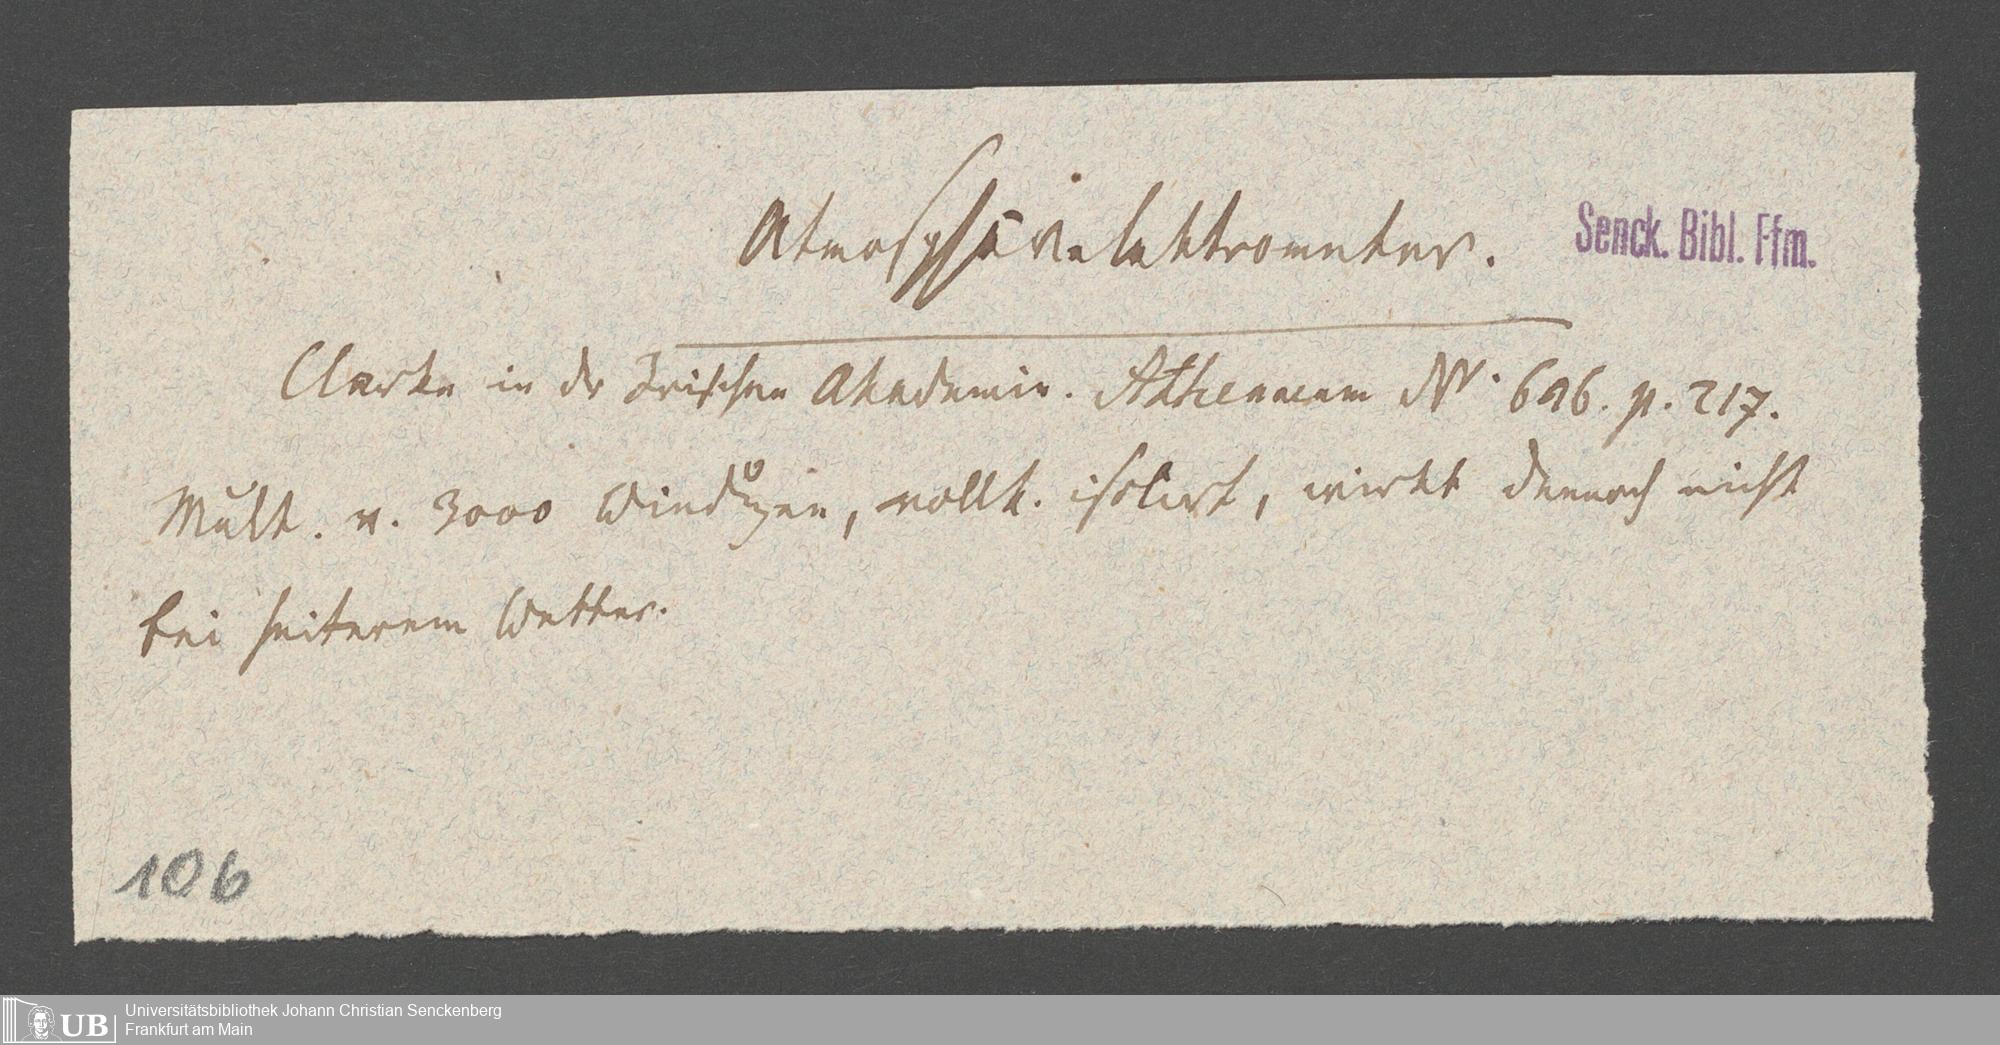 Atmosphärelektrometer.
Senck. Bibl. Ffm.
Clarke in dr Irischen Akademie. Athenaeum Nr. 696. p. 217.
Mult. v. 3000 Windgen, vollk. isolirt, wirkt dennoch nicht
bei heiterem Wetter.
106
UB
Universitätsbibliothek Johann Christian Senckenberg
Frankfurt am Main